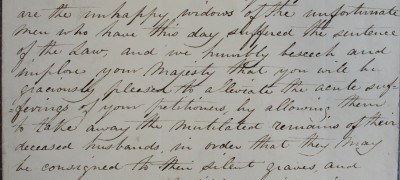 are the unhappy widows of the unfortunate
men who have this day suffered the sentence
of the Law, and we humbly beseech and
implore your Majesty that you will be
graciously pleased to alleviate the acute suf-
ferings of your petitioners, by allowing them
to take away the mutilated remains of their
deceased husbands, in order that they may
be consigned to their silent graves, and